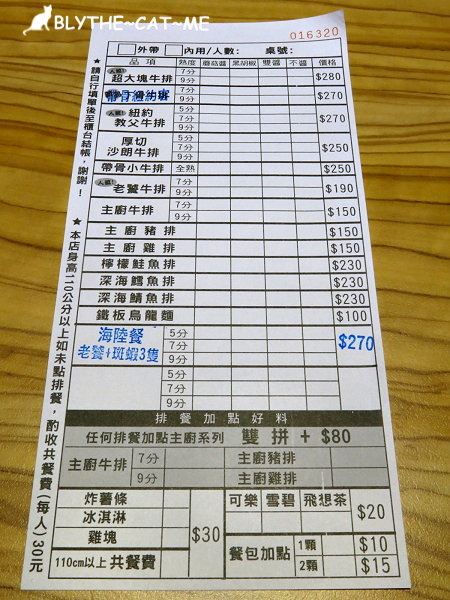 BLYTHE~CAT~ME
016320
外帶 內用/人數: 桌號:
品項 熟度 蘑菇醬 黑胡椒 雙醬 不醬 價格
人氣! 超大塊牛排 7分 9分 $280
帶骨紐約客 7分 9分 $270
人氣! 紐約教父牛排 5分 7分 9分 $270
厚切沙朗牛排 5分 7分 9分 $250
帶骨小牛排 全熟 $250
人氣! 老饕牛排 7分 9分 $190
主廚牛排 7分 9分 $150
主廚豬排 $150
主廚雞排 $150
檸檬鮭魚排 $230
深海鱈魚排 $230
深海鯖魚排 $230
鐵板烏龍麵 $100
海陸餐 老饕+斑蝦3隻 5分 7分 9分 $270
5分 7分 9分
排餐加點好料
任何排餐加點主廚系列 雙拼+$80
主廚牛排 7分 9分 主廚豬排 主廚雞排
炸薯條 冰淇淋 雞塊 110cm以上共餐費 $30
可樂 雪碧 飛想茶 $20
餐包加點 1顆 $10
2顆 $15
★請自行填單後至櫃台結帳,謝謝!
★本店身高110公分以上如未點排餐,酌收共餐費(每人)30元